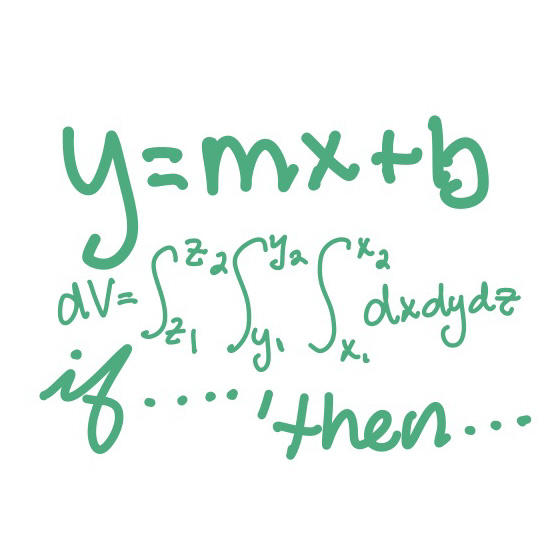 y=mx+b
dV=∫_{z₁}^{z₂}∫_{y₁}^{y₂}∫_{x₁}^{x₂}dxdydz
if....'then...